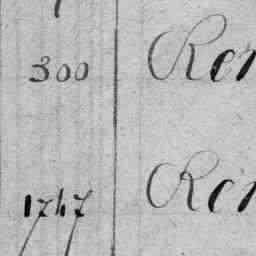 300 Ren
1747 Ren